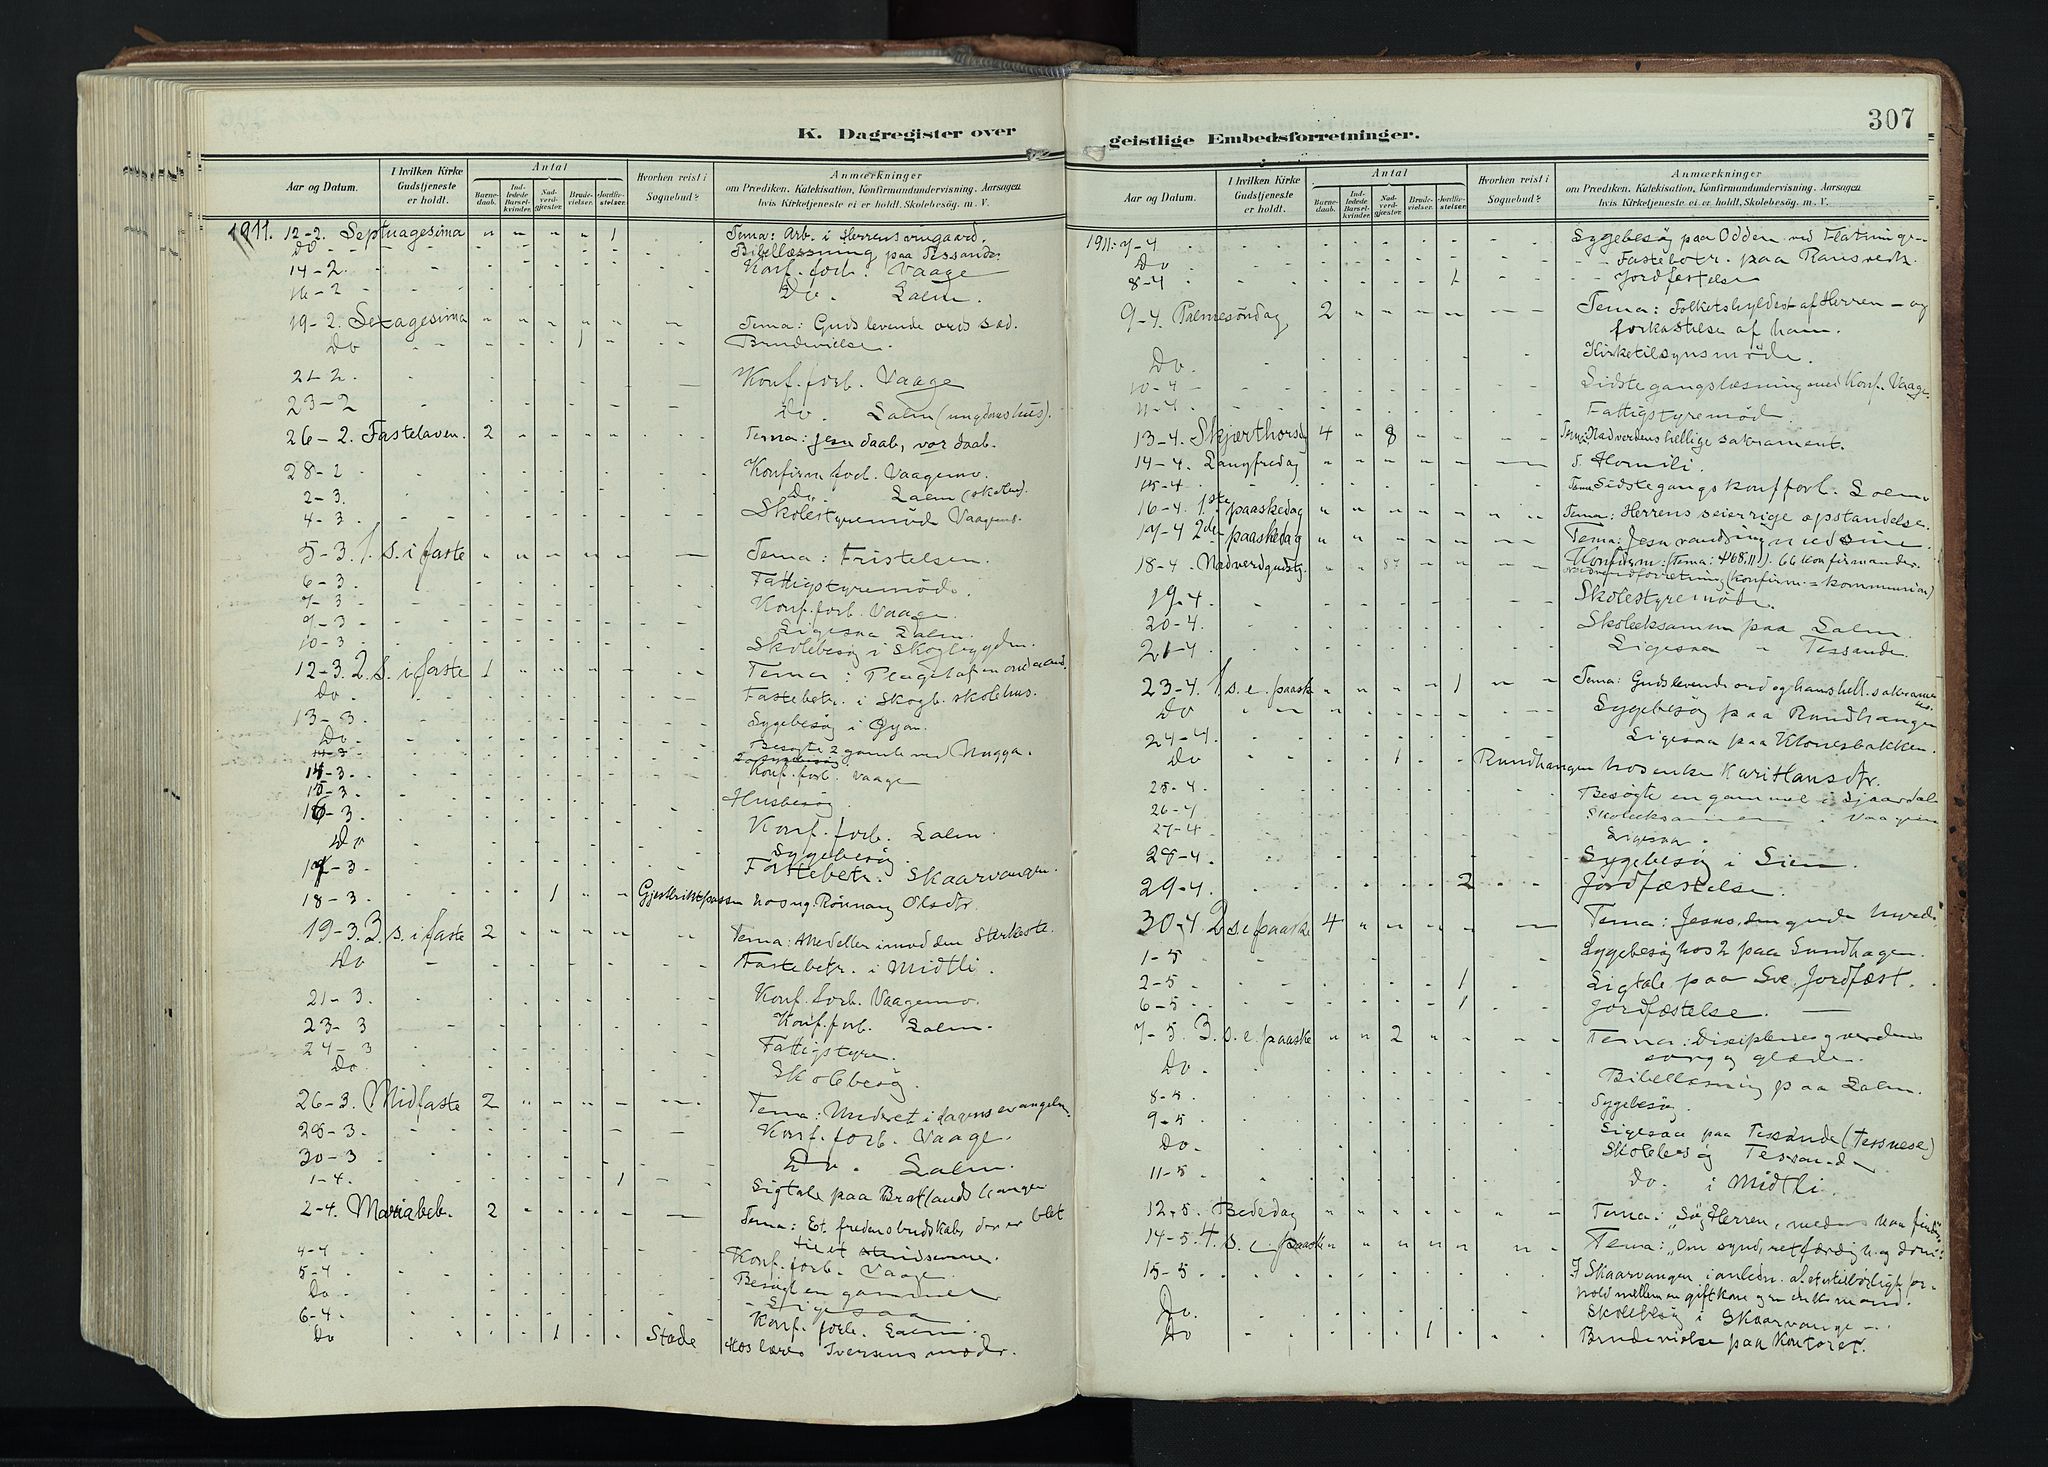 K. Dagregister over
Aar og Datum.
I hvilken Kirke Gudstjeneste er holdt.
Antal
Barne-daab.
Ind-ledede Barsel-kvinder.
Nad-verd-gjæster.
Brude-vielser.
Jordfæ-stelser.
Hvorhen reist i Sognebud?
Anmærkninger
om Prædiken, Katekisation, Konfirmandundervisning, Aarsagen
hvis Kirketjeneste ei er holdt, Skolebesøg, m. V.
1911. 12-2. Septuagesima " " " " 1 Tema: Arb. i Herrens vingaard.
Do Bibellæsning paa Tessanden
14-2. Konf. forb. Vaage
16-2 Do. Lalm.
19-2. Sexagesima " " " " " Tema: Guds levende ords sæd.
Do 1 Brudevielse.
21-2. Konf. forb. Vaage
23-2 Do. Lalm (ungdomshus).
26-2. Fastelaven. 2 Tema: Jesu daab, vor daab.
28-2 Konfirm. forb. Vaagemo.
2-3. Do. Lalm
4-3. Skolestyremøde
5-3. 1. s. i faste Tema: Fristelsen.
6-3. Fattigstyremøde.
7-3 Konf. forb. Vaage.
9-3 Ligesaa Lalm.
10-3. Skolebesøg i Skogbygden.
12-3. 2. s. i faste 1 Tema:
Do Fastebetr. i Skogb. skolehus.
13-3. Sygebesøg i
Do. Besøgte 2 gamle ved
14-3. Konf. forb. Vaage
15-3. Husbesøg
16-3 Konf. forb. Lalm.
Do Sygebesøg.
17-3 Fastebetr. Skaarvangen.
18-3. 1 hos ug. Rønnaug Olsdtr.
19-3. 3. s. i faste 2 Tema: Med eller imod den Sterkeste.
Do Fastebetr. i Midtli.
21-3. Konf. forb. Vaagemo.
23-3 Konf. forb. Lalm.
24-3 Fattigstyre.
Do. Skolebesøg
26-3. Midfaste 2 Tema: Underet i dagens evangelm.
28-3. Konf. forb. Vaage.
30-3 Do. Lalm.
1-4. 1 Ligtale paa
2-4. Mariabeb. 2 Tema: Et fredens budskab, der er blet
til et
4-4 Konf. forb. Vaage.
5-4 Besøgt en gammel
Do Ligesaa
6-4. Konf. forb. Lalm.
Do 1 Stade Hos lærer Iversens moder.
307
geistlige Embedsforretninger.
Aar og Datum.
I hvilken Kirke Gudstjeneste er holdt.
Antal
Barne-daab.
Ind-ledede Barsel-kvinder.
Nad-verd-gjæster.
Brude-vielser.
Jordfæ-stelser.
Hvorhen reist i Sognebud?
Anmærkninger
om Prædiken, Katekisation, Konfirmandundervisning, Aarsagen
hvis Kirketjeneste ei er holdt, Skolebesøg, m. V.
1911: 7-4 Sygebesøg paa Odden ved
Do Fastebetr. paa
8-4 1 Jordfestelse
9-4. Palmesøndag 2 Tema: Folkets hyldest af Herren - og
forkastelse af ham.
Do. Kirketilsynsmøde.
10-4 Sidste gangs læsning med Konf. Vaage.
11-4 Fattigstyremøde
13-4. Skjærthorsdag 4 " 8 Tema: Nadverdens hellige sakrament.
14-4. Langfredag Homili.
15-4 Sidste gangs konf forb. Lalm
16-4. 1ste paaskedag Tema: Herrens seierrige opstandelse.
17-4 2den paaskedag Tema: Jesu vandring med sine
18-4 Nadverdgudstj. 87 Konfirm: (Tema: 468, 11). 66 konfirmander.
(konfirm = kommunion)
19-4. Skolestyremøde.
20-4. Skoleeksamen paa Lalm.
21-4 Ligesaa " Tessanden
23-4. 1 s. e. paask 1 Tema: Guds levende ord og hans hell. sakramen
Do Sygebesøg paa Rundhaugen
24-4. Ligesaa paa Klonesbakken.
Do 1 Rundhaugen hos enke Kari Hansdtr.
25-4. Besøgte en gammel i Sjaardalen
26-4 Skoleeksamen i
27-4 Ligesaa.
28-4. Sygebesøg i Lien.
29-4. 2 Jordfæstelse.
30-4. 2 s. e. paaske 4 Tema: Jesus, den gode hyrde.
1-5 Sygebesøg hos 2 paa Sundhagen.
2-5 1 Ligtale paa Sve. Jordfæst.
6-5 1 Jordfæstelse.
7-5. 3. s. e. paaske " " 2 Tema: Disciplenes og verdens
sorg og glæde.
Do. Bibellæsning paa Lalm.
8-5 Sygebesøg.
9-5 Ligesaa paa Tessanden (Tessnese)
Do. Skolebesøg Tessanden
11-5. Do. i Midtli.
12-5. Bededag Tema: „Søg Herren, medens han findes
14-5. 4. s. e. paaske Tema: „Om synd, retfærdigh. og dom".
15-5 I Skaarvangen i anledn. af et utilbørligt for-
hold mellem en gift kone og en enkemand.
Do. Skolebesøg i Skaarvangen
Do 1 Brudevielse paa Kontoret.